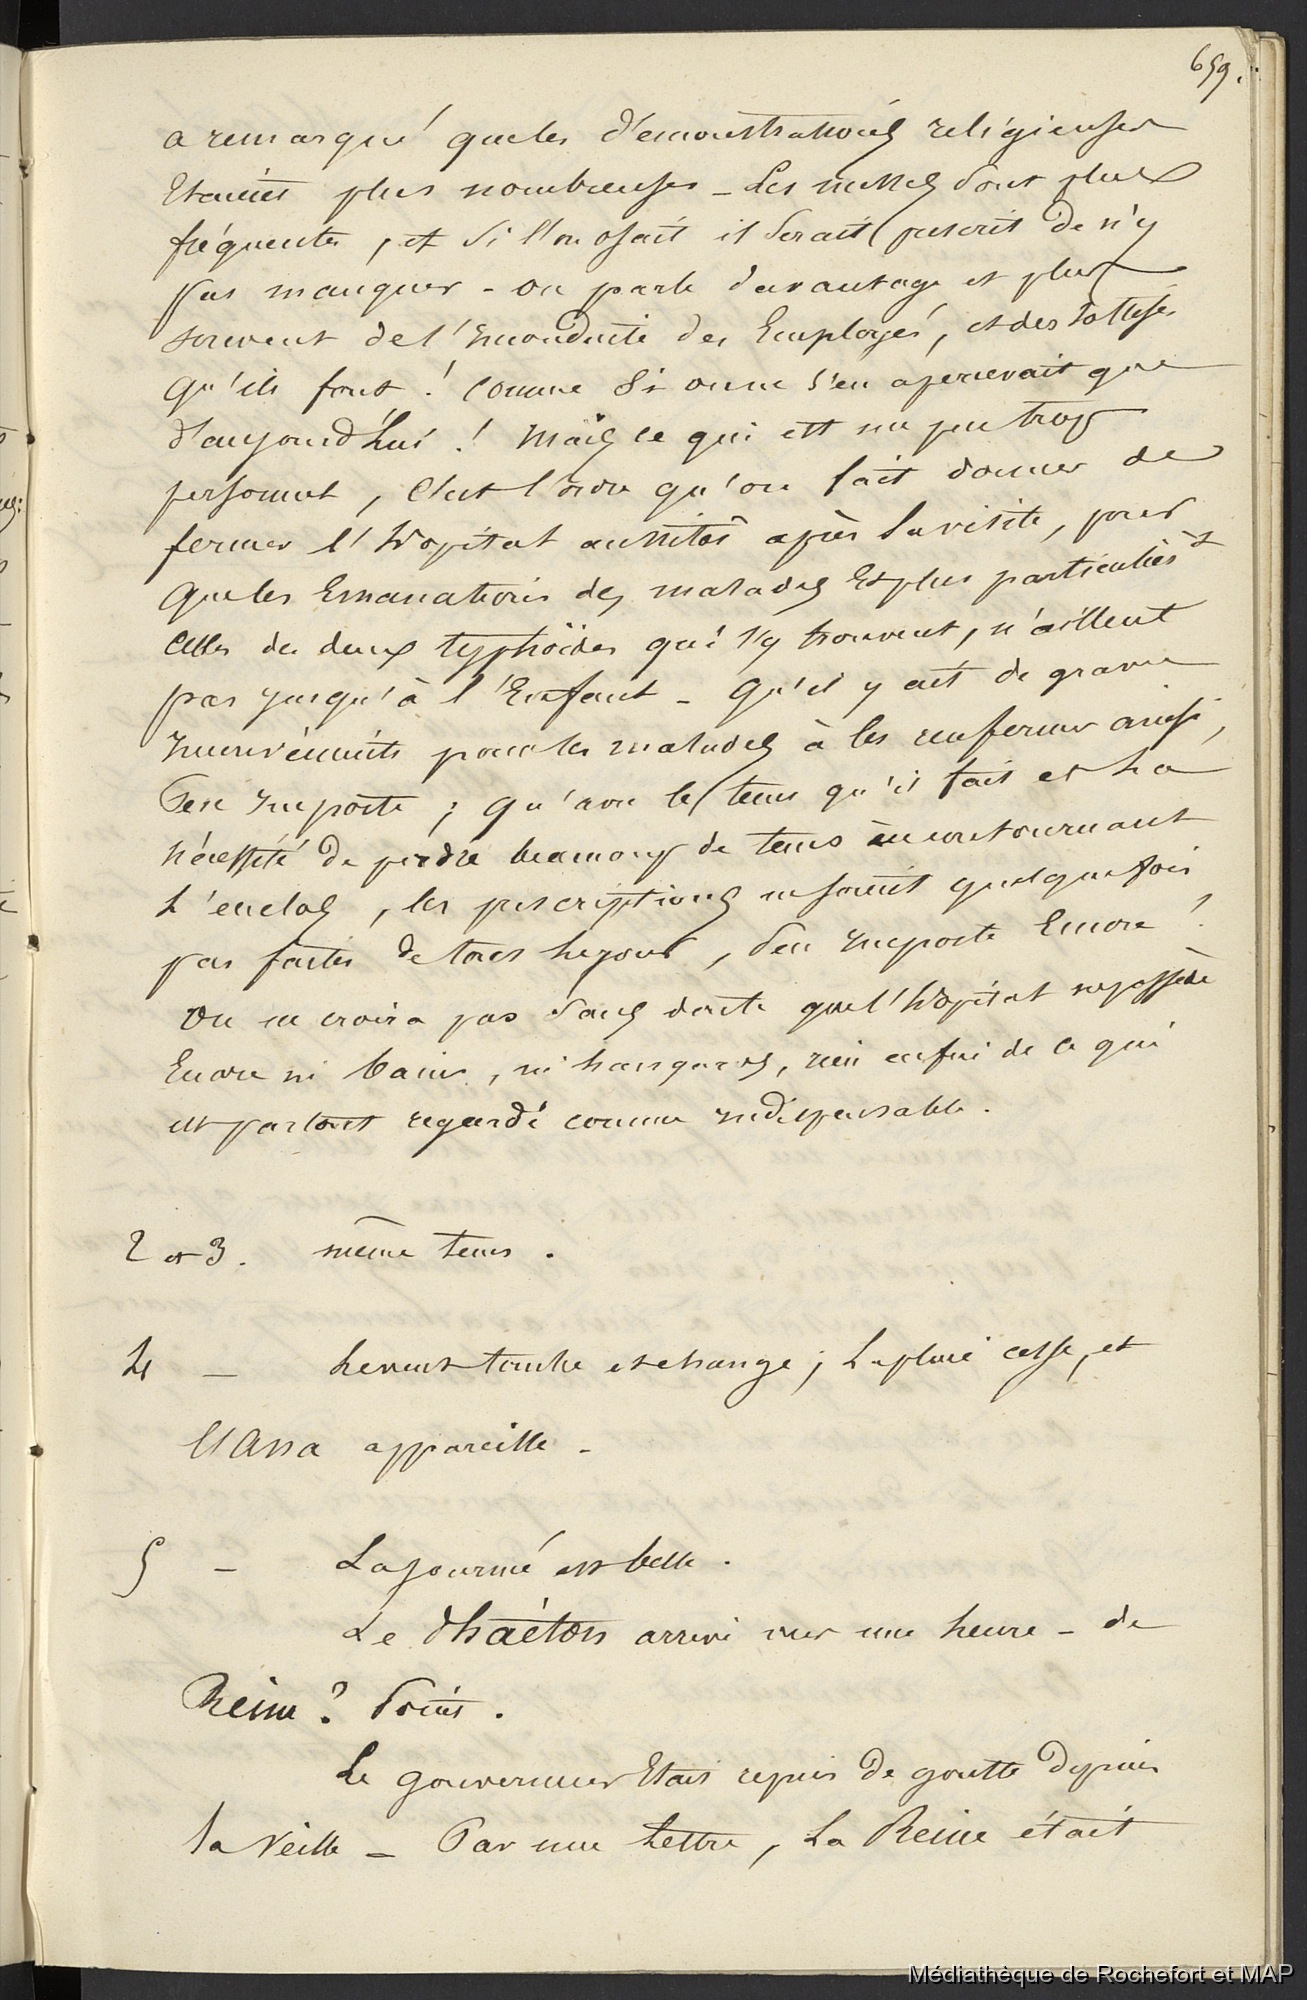 659.
a remarqué que les démonstrations religieuses
Etaient plus nombreuses - Les messes sont plus
fréquentes, et si l'on osait il serait prescrit de n'y
pas manquer - on parle davantage et plus
souvent de l'inconduite des Employés, et des sottises
qu'ils font ! comme si on ne s'en apercevait que
d'aujourd'hui ! Mais ce qui est un peu trop
personnel, c'est l'ordre qu'on fait donner de
fermer l'hôpital aussitôt après la visite, pour
que les Emanations des malades Et plus particulièrt
celles des deux typhoïdes qui s'y trouvent, n'aillent
pas jusqu'à l'Enfant - qu'il y ait de graves
inconvénients pour les malades à les renfermer ainsi,
Peu importe ; qu'avec le tems qu'il fait et la
nécessité de perdre beaucoup de tems en contournant
l'enclos, les prescriptions ne soient quelquefois
pas faites de tous les jours, Peu importe Encore !
On ne croira pas sans doute que l'hôpital ne possède
Encore ni bains, ni hangards, rien enfin de ce qui
est partout regardé comme indispensable.
2 et 3. même tems.
4 - Le vent tombe et change ; La pluie cesse, et
l'Ana appareille -
5 - La journée est belle.
Le Phaéton arrive vers une heure - de
Reine ? Point.
Le gouverneur Etait repris de goutte depuis
la veille - Par une Lettre, La Reine était
Médiathèque de Rochefort et MAP